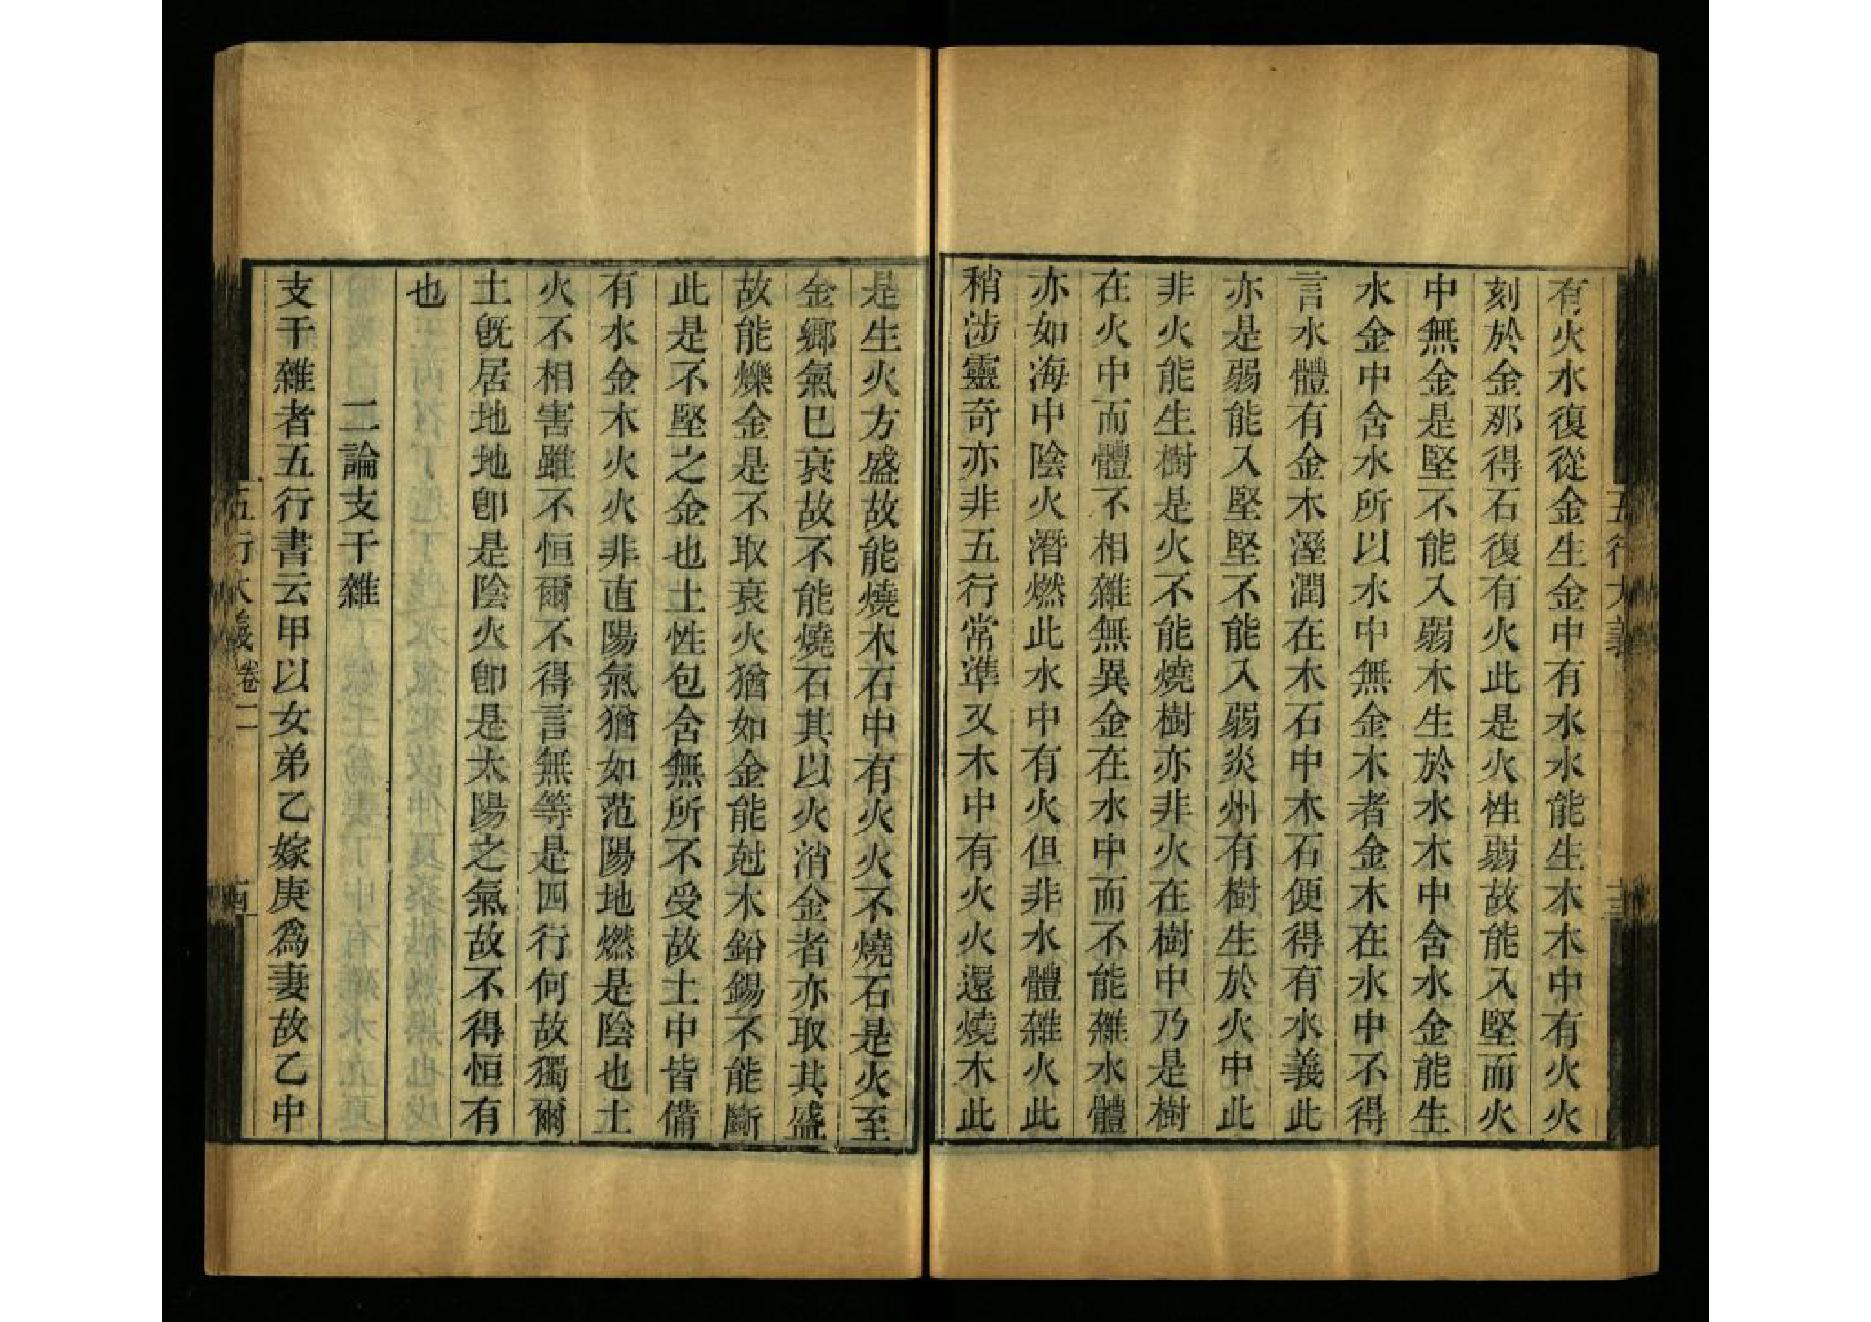 有火水復從金生金中有水水能生木木中有火火
刻於金那得石復有火此是火性弱故能入堅而火
中無金是堅不能入弱木生於水木中含水金能生
水金中含水所以水中無金木者金木在水中不得
言水體有金木溼潤在木石中木石便得有水義此
亦是弱能入堅堅不能入弱炎州有樹生於火中此
非火能生樹是火不能燒樹亦非火在樹中乃是樹
在火中而體不相雜無異金在水中而不能雜水體
亦如海中陰火潛燃此水中有火但非水體雜火此
稍涉靈奇亦非五行常準又木中有火火還燒木此
是生火方盛故能燒木石中有火火不燒石是火至
金鄉氣已衰故不能燒石其以火消金者亦取其盛
故能爍金是不取衰火猶如金能尅木鉛錫不能斷
此是不堅之金也土性包含無所不受故土中皆備
有水金木火火非直陽氣猶如范陽地燃是陰也土
火不相害雖不恒爾不得言無等是四行何故獨爾
土既居地地卽是陰火卽是太陽之氣故不得恒有
也
二論支干雜
支干雜者五行書云甲以女弟乙嫁庚爲妻故乙中
五行大義卷二